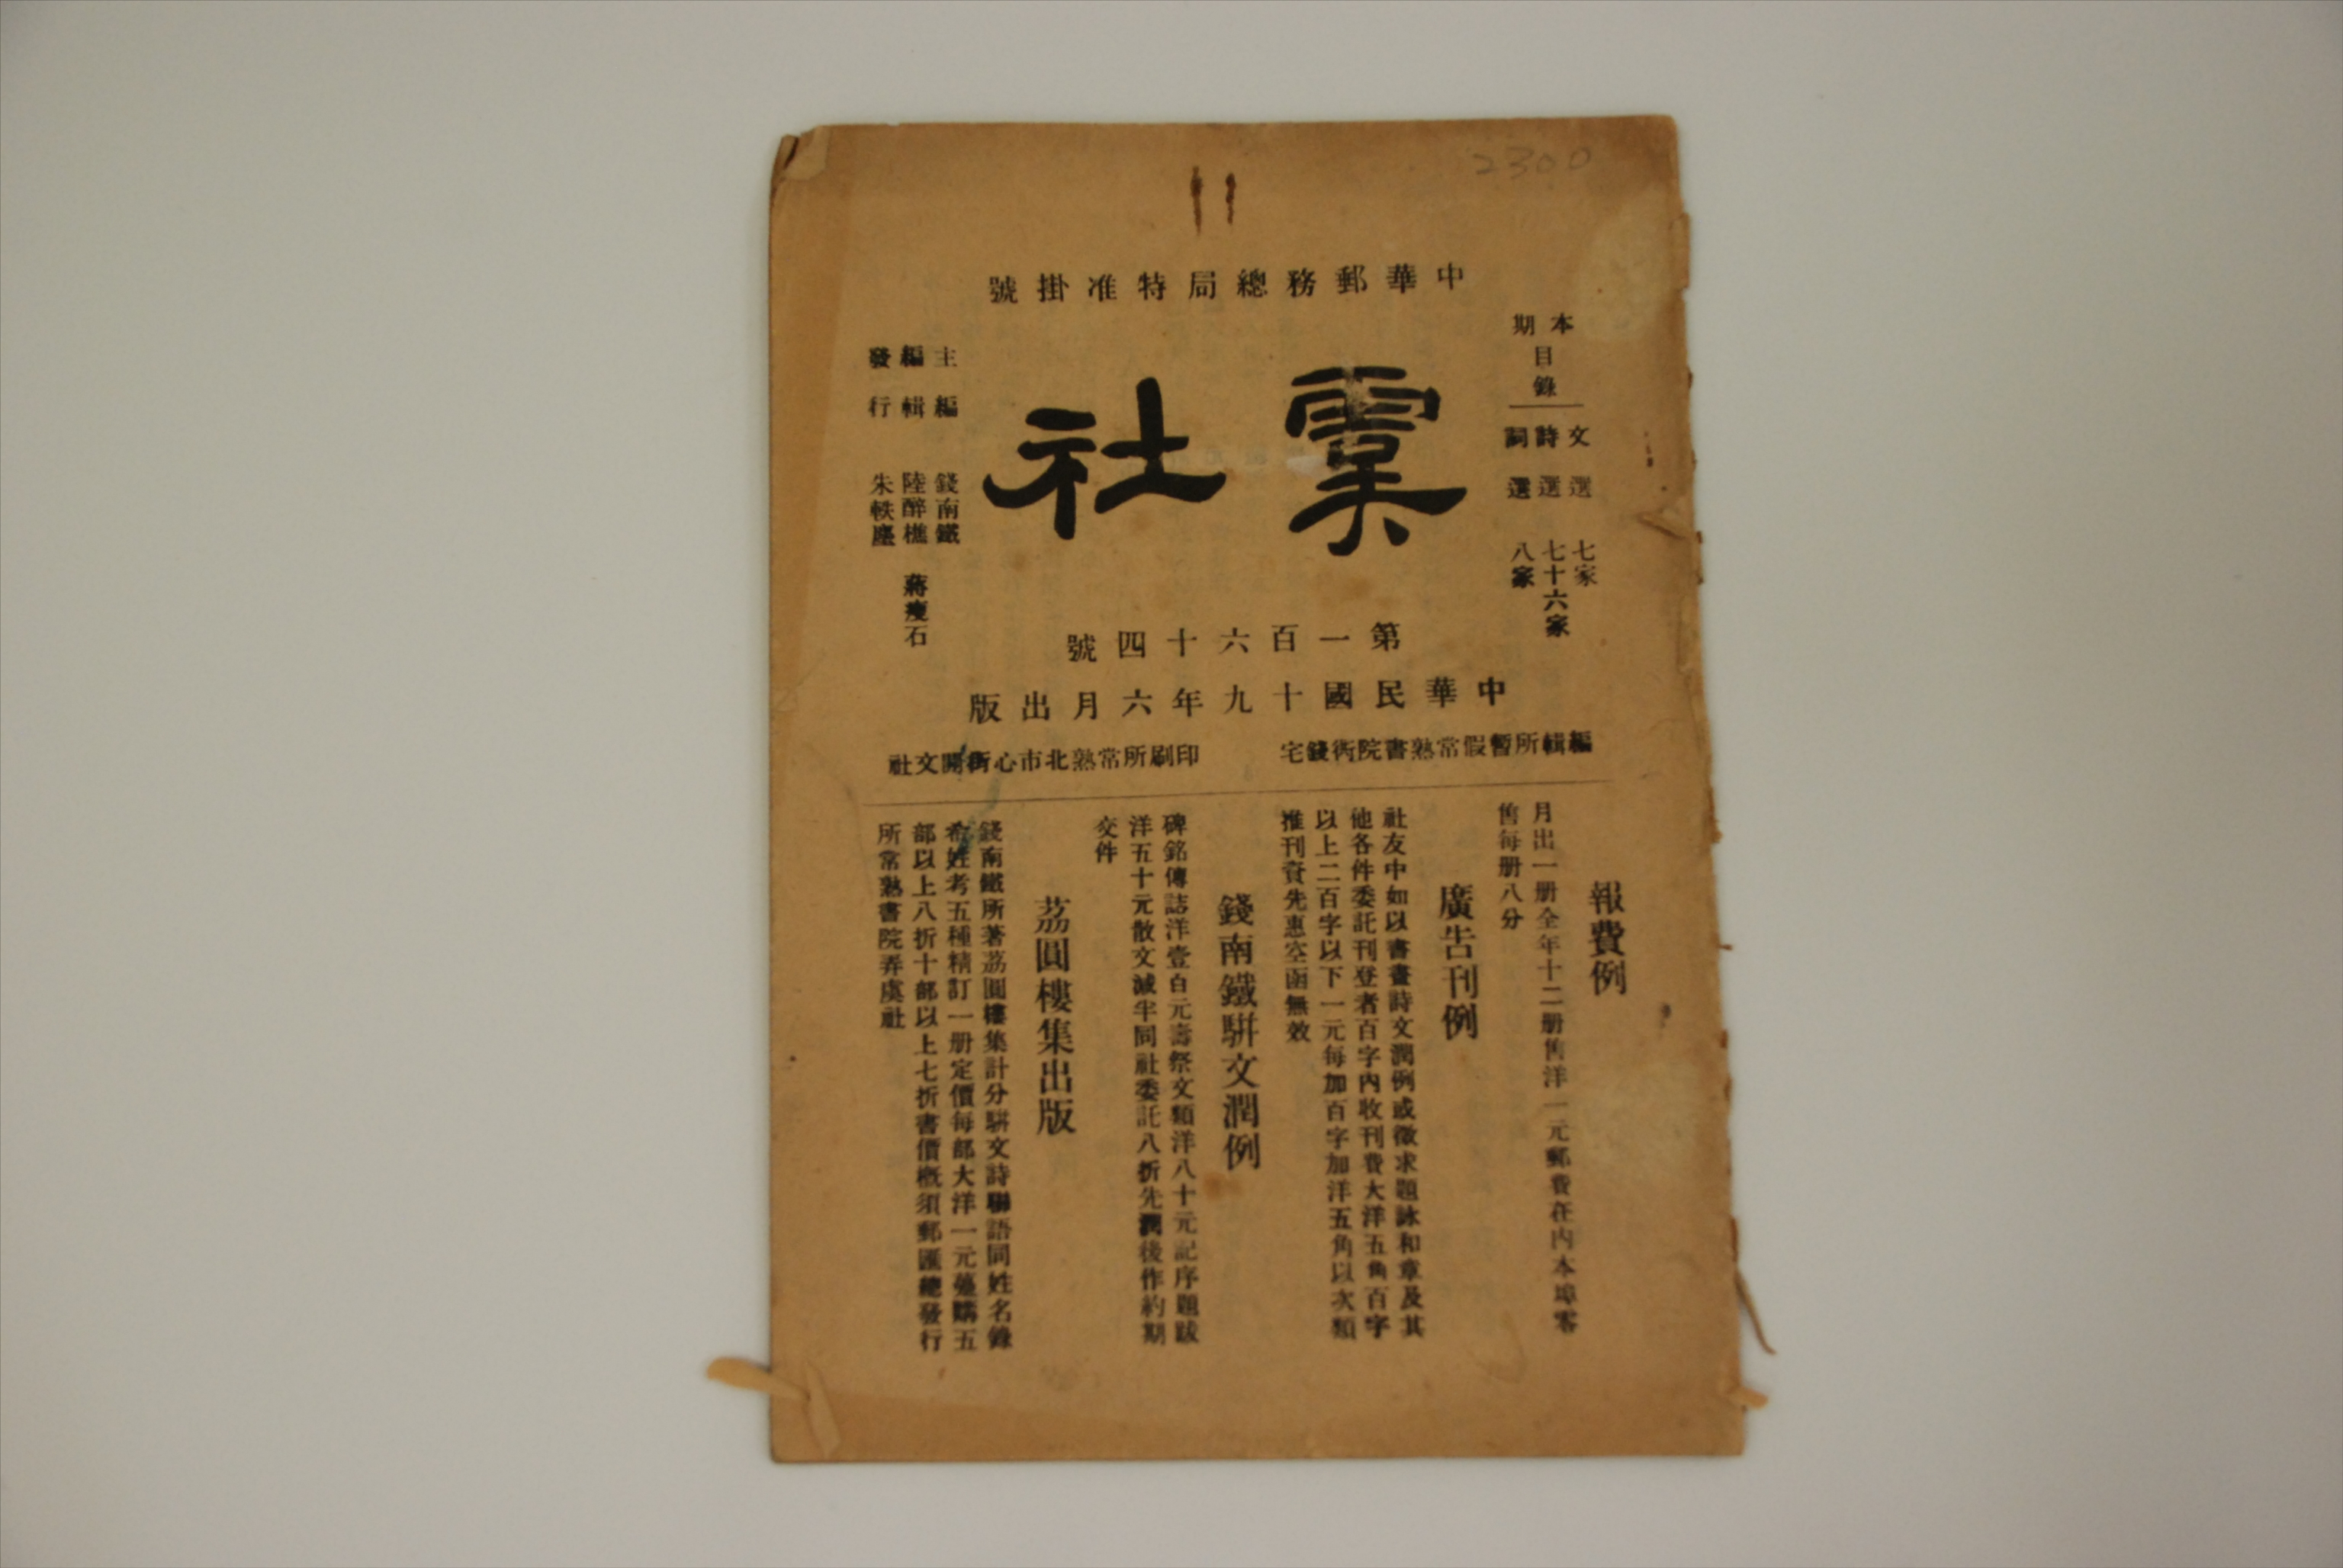 2300
中華郵務總局特准掛號
本期
目錄
文選 七家
詩選 七十六家
詞選 八家
虞社
主編 錢南鐵
編輯 陸醉樵 蔣瘦石
發行 朱軼塵
第一百六十四號
中華民國十九年六月出版
編輯所暫假常熟書院衖錢宅
印刷所常熟北市心街開文社
報費例
月出一册全年十二册售洋一元郵費在內本埠零
售每册八分
廣告刊例
社友中如以書畫詩文潤例或徵求題詠和章及其
他各件委託刊登者百字內收刊費大洋五角百字
以上二百字以下一元每加百字加洋五角以次類
推刊資先惠空函無效
錢南鐵駢文潤例
碑銘傳誌洋壹百元壽祭文類洋八十元記序題跋
洋五十元散文減半同社委託八折先潤後作約期
交件
荔圓樓集出版
錢南鐵所著荔圓樓集計分駢文詩聯語同姓名錄
希姓考五種精訂一册定價每部大洋一元躉購五
部以上八折十部以上七折書價概須郵匯總發行
所常熟書院弄虞社